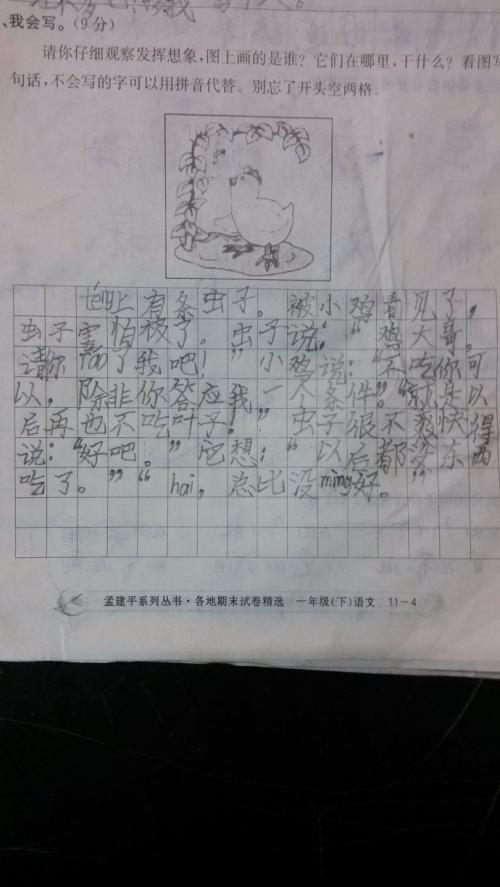 、我会写。(9分)
请你仔细观察发挥想象,图上画的是谁?它们在哪里,干什么?看图写
句话,不会写的字可以用拼音代替。别忘了开头空两格。
上有条虫子。被小鸡看见了,
虫子害怕极了。虫子说:“鸡大哥,
请你 了我吧!”小鸡说:“不吃你可
以,除非你答应我一个条件。”就是可以
后再也不吃叶子!”虫子很不爽快得
说:“好吧。”它想:“以后都没东西
吃了。”“hai,总比没ming好。”
孟建平系列丛书·各地期末试卷精选 一年级(下)语文 11-4